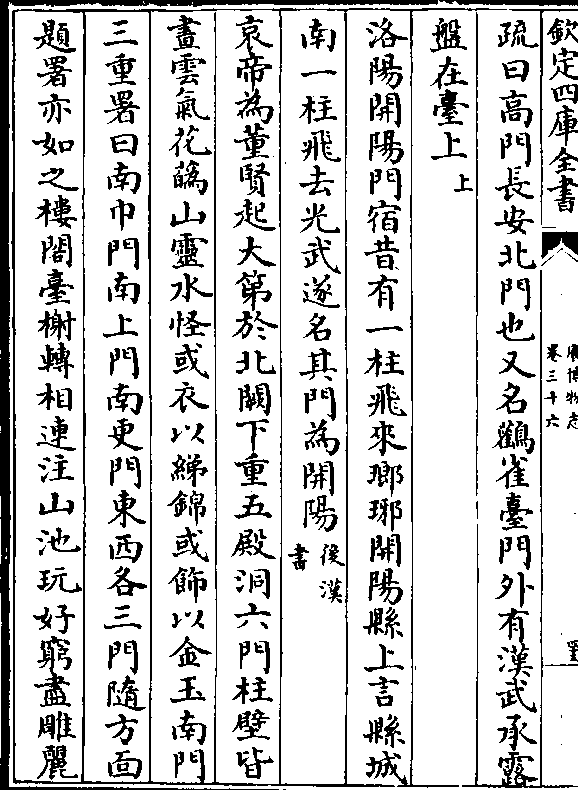 欽定四庫全書
廣博物志
卷三十六
疏曰高門長安北門也又名鸛雀臺門外有漢武承露
盤在臺上上
洛陽開陽門宿昔有一柱飛來瑯琊開陽縣上言縣城
南一柱飛去光武遂名其門為開陽後漢
書
哀帝為董賢起大第於北闕下重五殿洞六門柱壁皆
畫雲氣花蘤山靈水怪或衣以綈錦或飾以金玉南門
三重署曰南巾門南上門南更門東西各三門隨方面
題署亦如之樓閣臺榭轉相連注山池玩好窮盡雕麗